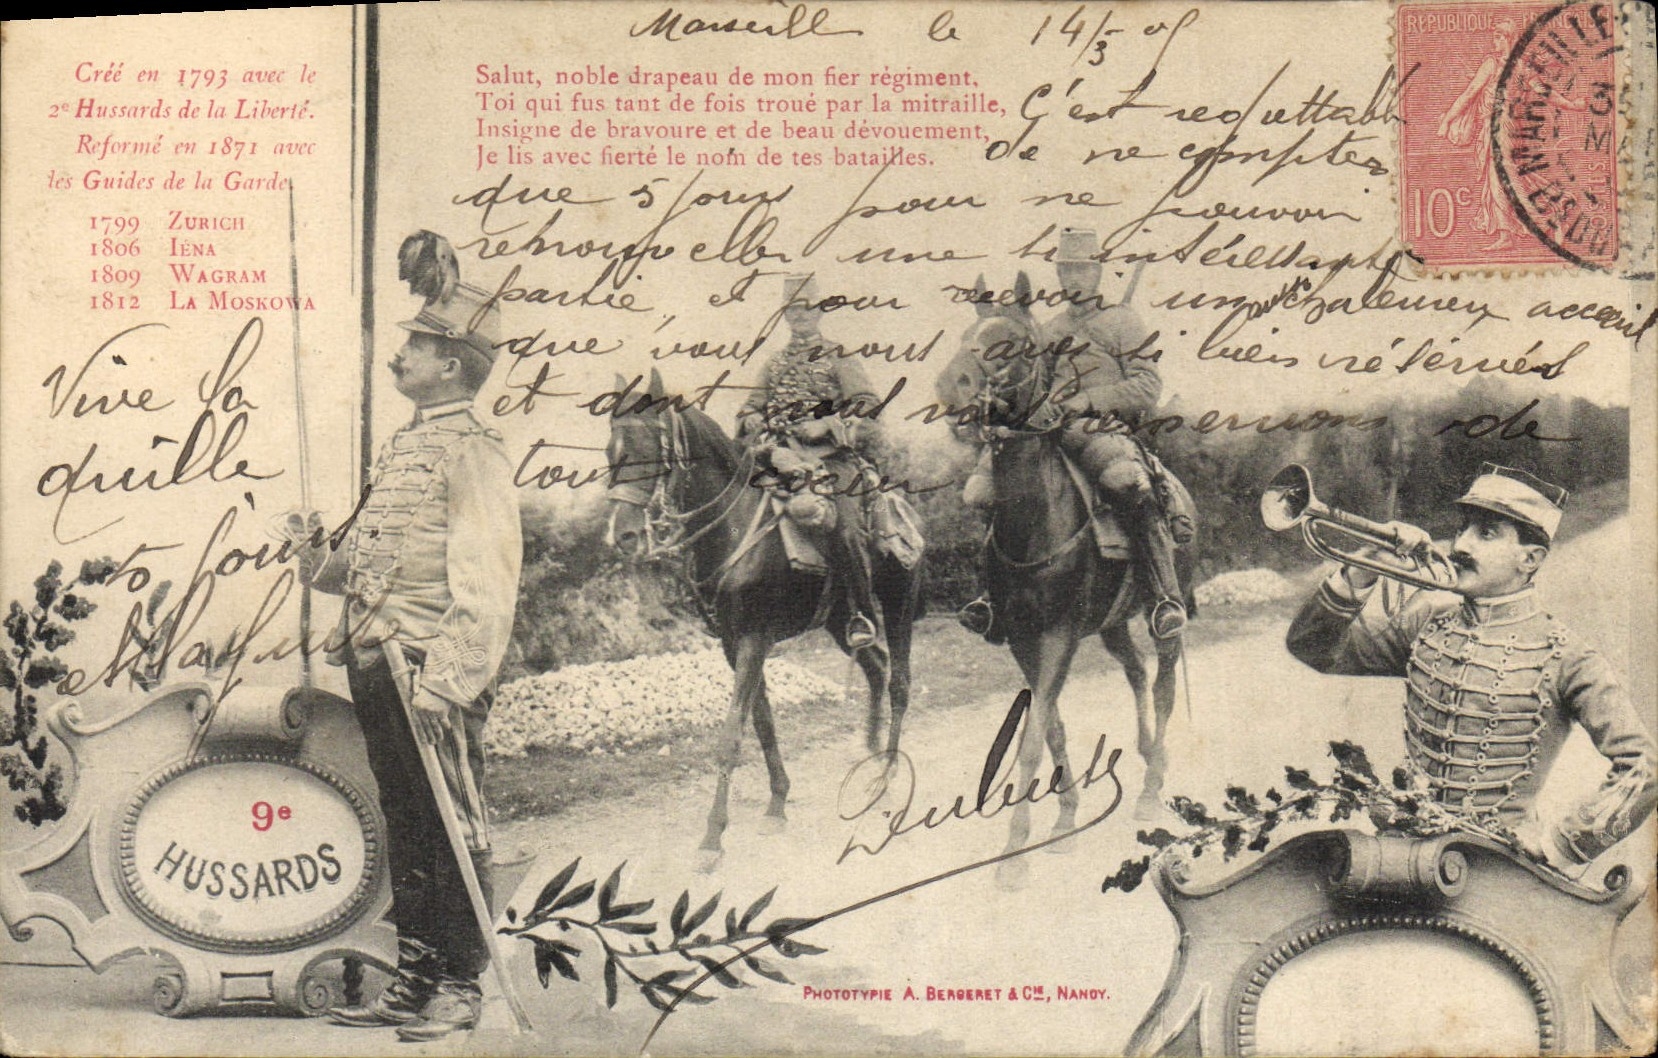 Marseille le 14/3 05
Créé en 1793 avec le
2e Hussards de la Liberté.
Reformé en 1871 avec
les Guides de la Garde
1799 ZURICH
1806 IÉNA
1809 WAGRAM
1812 LA MOSKOWA
Salut, noble drapeau de mon fier régiment,
Toi qui fus tant de fois troué par la mitraille,
Insigne de bravoure et de beau dévouement,
Je lis avec fierté le nom de tes batailles.
C'est regrettable
de ne compter
que 5 jours pour ne pouvoir
renouveller une si intéressante
partie, et pour recevoir un chaleureux accueil
que vous nous avez si bien réservés
et dont nous vous remercions de
tout coeur
Vive la
quille
5 jours.
Dubuets
RÉPUBLIQUE FRANÇAISE
10c
MARSEILLE
9e
HUSSARDS
PHOTOTYPIE A. BERGERET & Cie, NANCY.